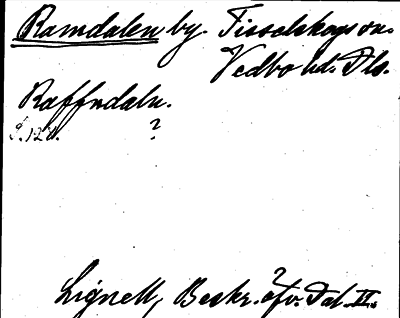 Ramdalen by. Tisselskogs sn.
Vedbo hd. Dls.
Raffndaln.
S. 121. ?
Lignell, Beskr. öfv. Dal. II.